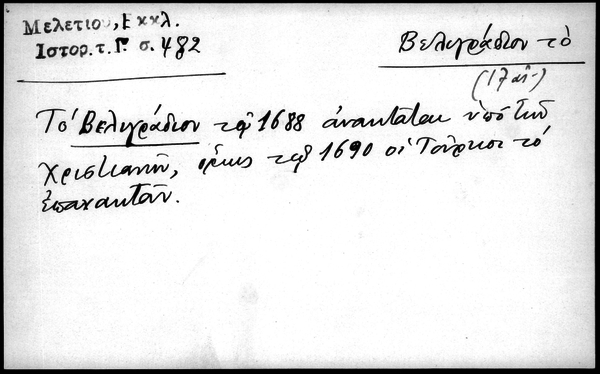 Μελετίου, Εκκλ.
Ιστορ. τ. Γ. σ. 482
Βελιγράδιον τὸ
(17 αἰ.)
Τὸ Βελιγράδιον τῷ 1688 ἀνακτᾶται ὑπὸ τῶν
χριστιανῶν, ὅμως τῷ 1690 οἱ Τοῦρκοι τὸ
ἐπανακτοῦν.